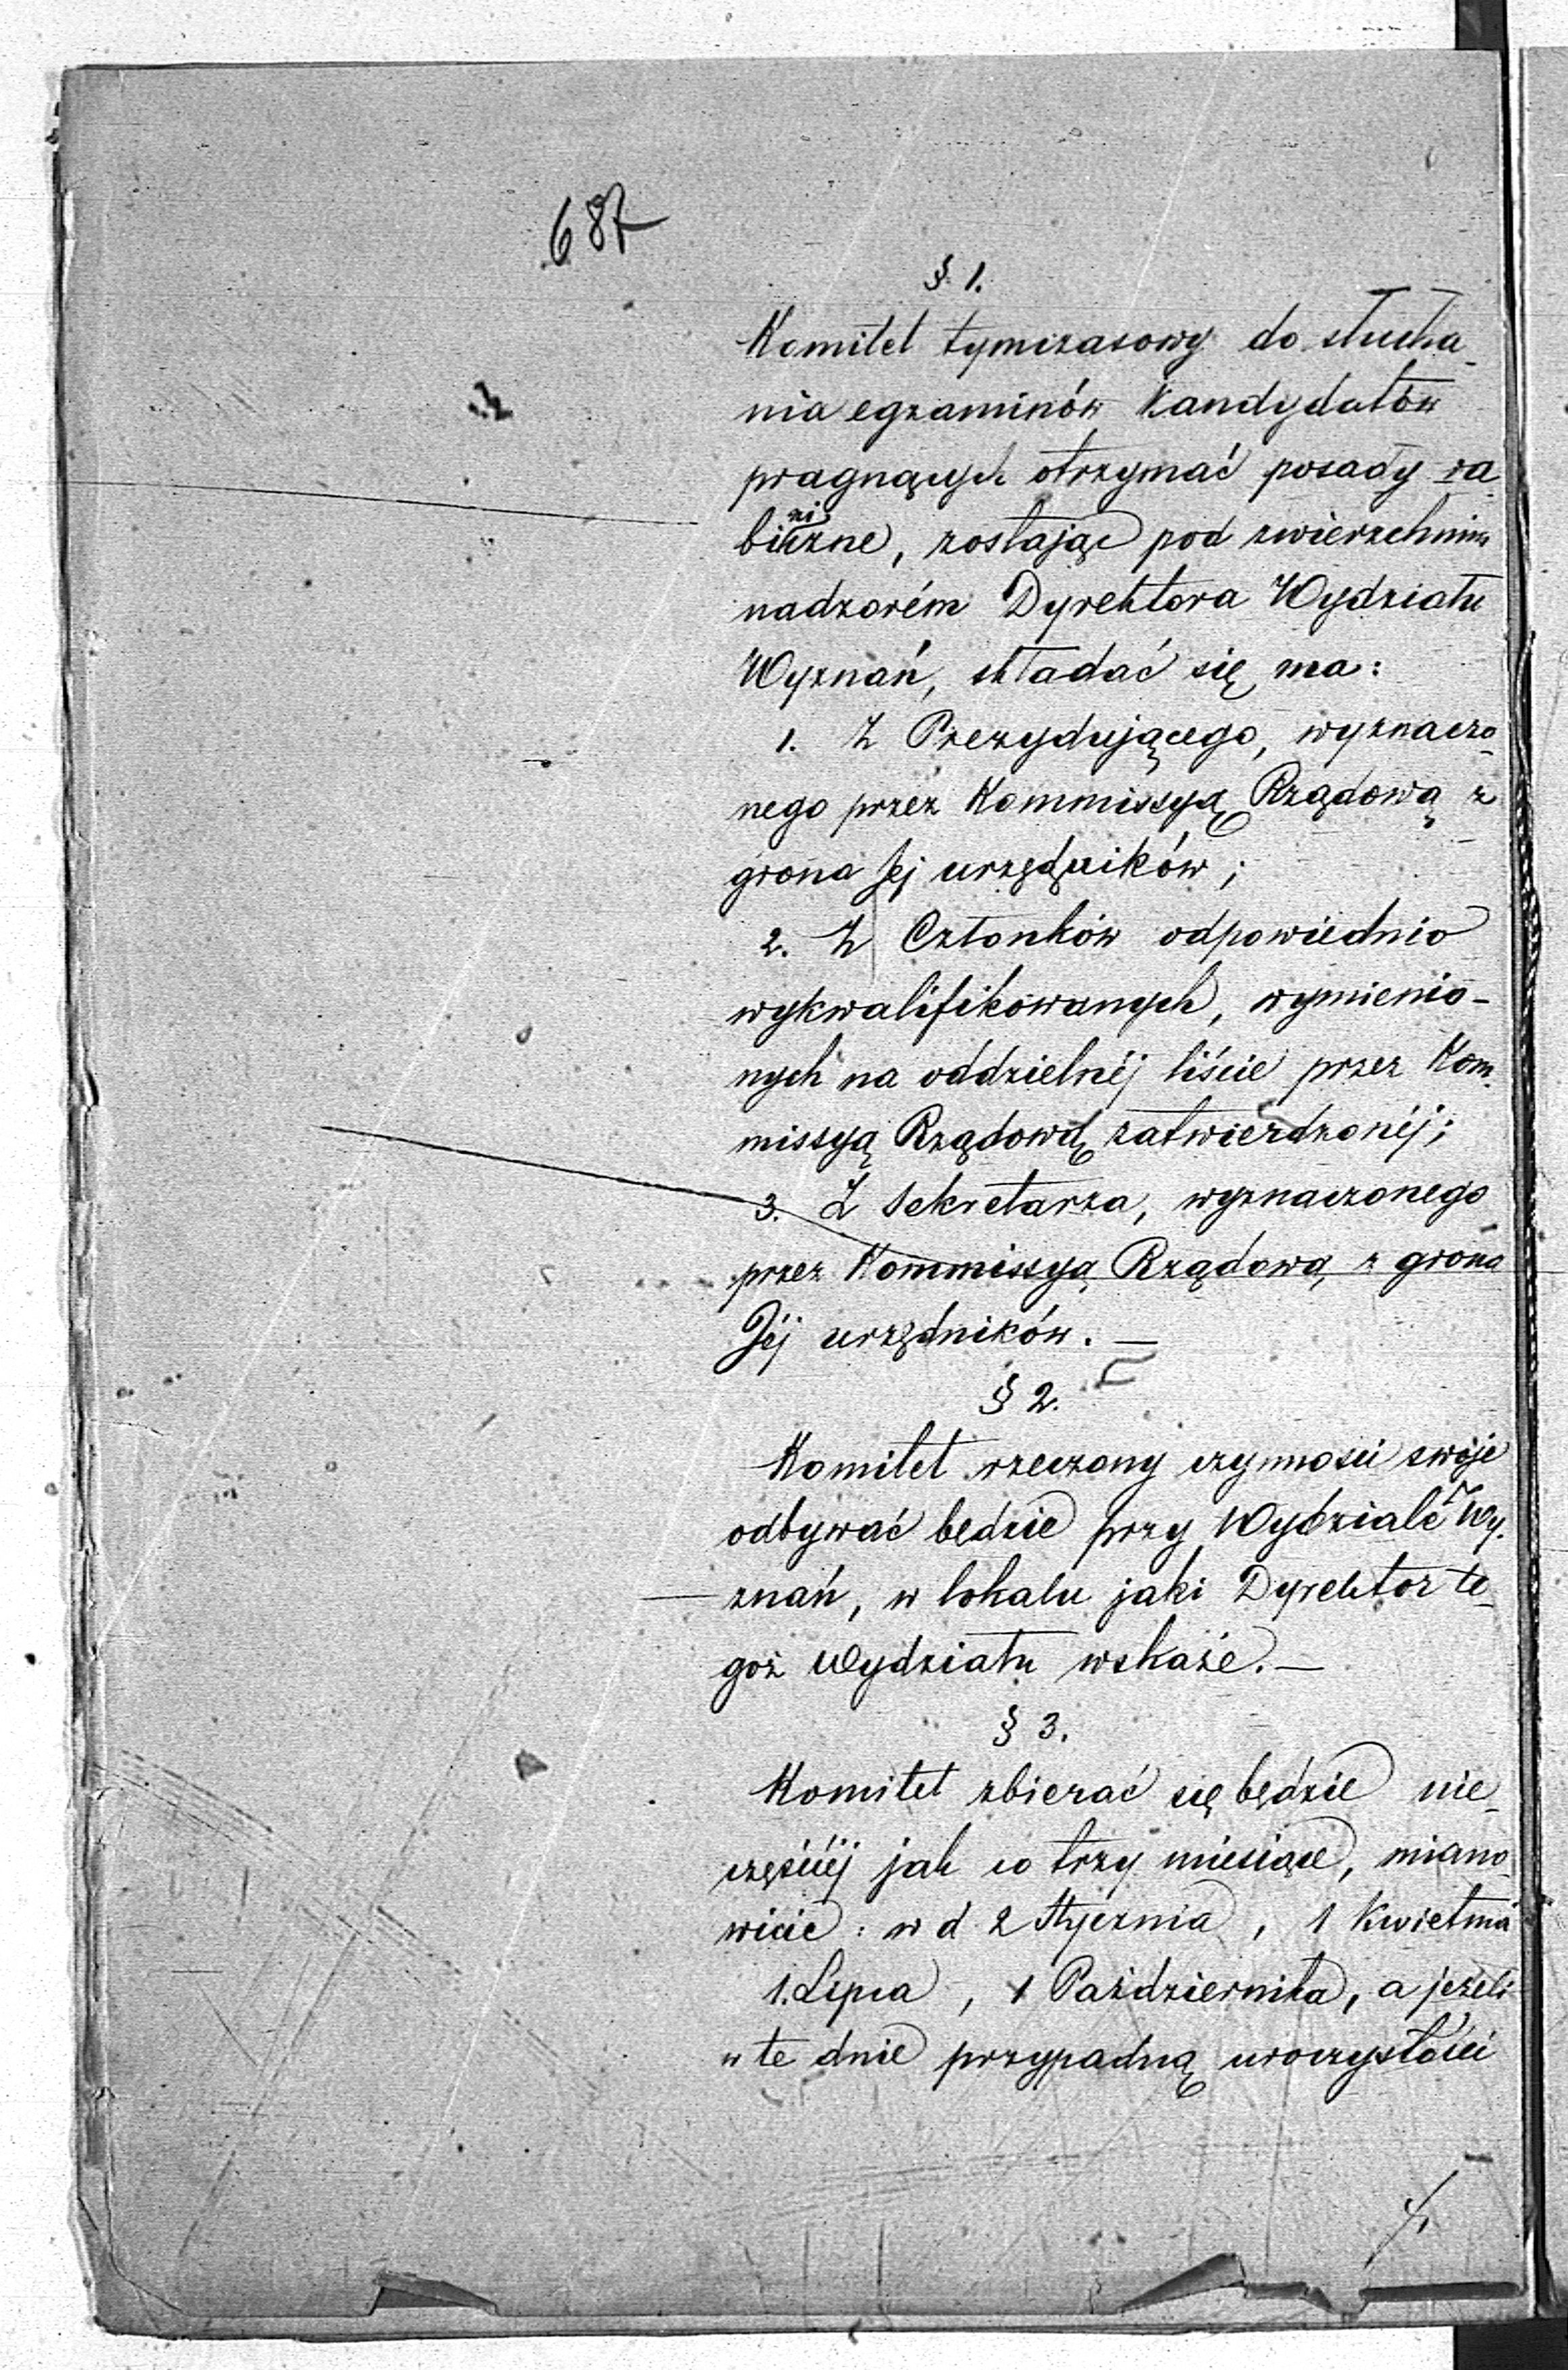 687
§ 1.
Komitet tymczasowy do słucha-
nia egzaminów Kandydatów
pragnących otrzymać posady ra-
biniczne, zostając pod zwierzchnim
nadzorém Dyrektora Wydziału
Wyznań, składać się ma:
1. Z Prezydującego, wyznaczo-
nego przez Kommissyą Rządową z
grona Jej urzędników;
2. Z Członków odpowiednio
wykwalifikowanych, wymienio-
nych na oddzielnéj liście przez Kom-
missyą Rządową zatwierdzonéj;
3. Z Sekretarza, wyznaczonego
przez Kommissyą Rządową z grona
Jéj urzędników. —
§ 2.
Komitet rzeczony czynności swoje
odbywać będzie przy Wydziale Wy-
znań, w lokalu jaki Dyrektor te-
goż Wydziału wskaże. —
§ 3.
Komitet zbierać się będzie nie-
częściéj jak co trzy miesiące, miano-
wicie: w d. 2 Stycznia, 1 Kwietnia
1. Lipca, 1 Października, a jeżeli
w te dnie przypadną uroczystości